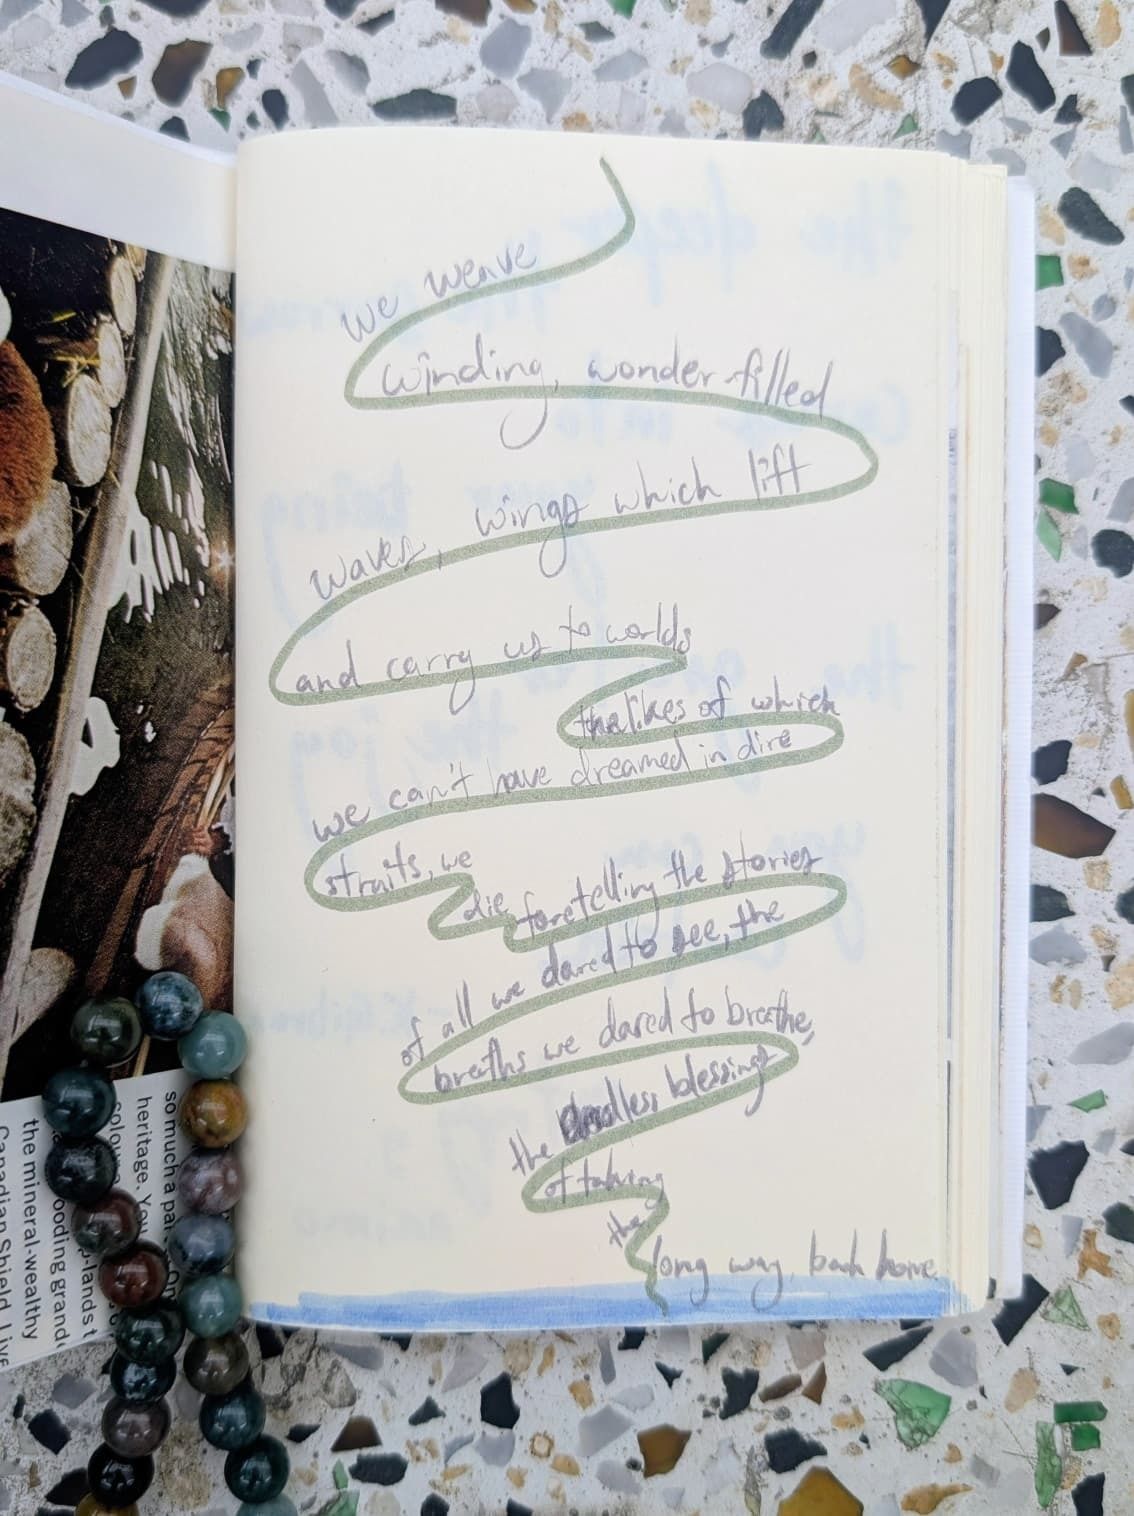 we weave
winding, wonder-filled
waves, wings which lift
and carry us to worlds
the likes of which
we can't have dreamed in dire
straits, we
die foretelling the stories
of all we dared to see, the
breaths we dared to breathe,
the endless blessings
of taking
the
long way back home.
so much a par
heritage. You
colou
p-lands t
ooding grand
the mineral-wealthy
Canadian Shield. Live